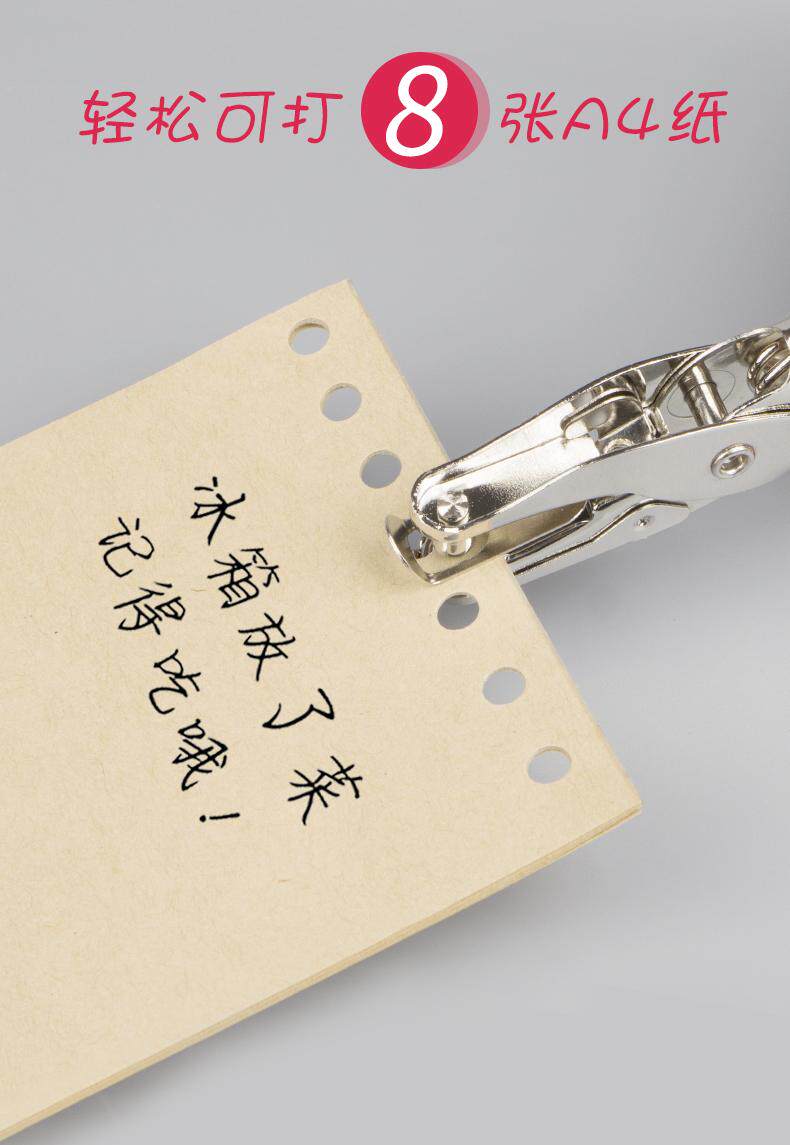 轻松可打8张A4纸
冰箱放了菜
记得吃哦！